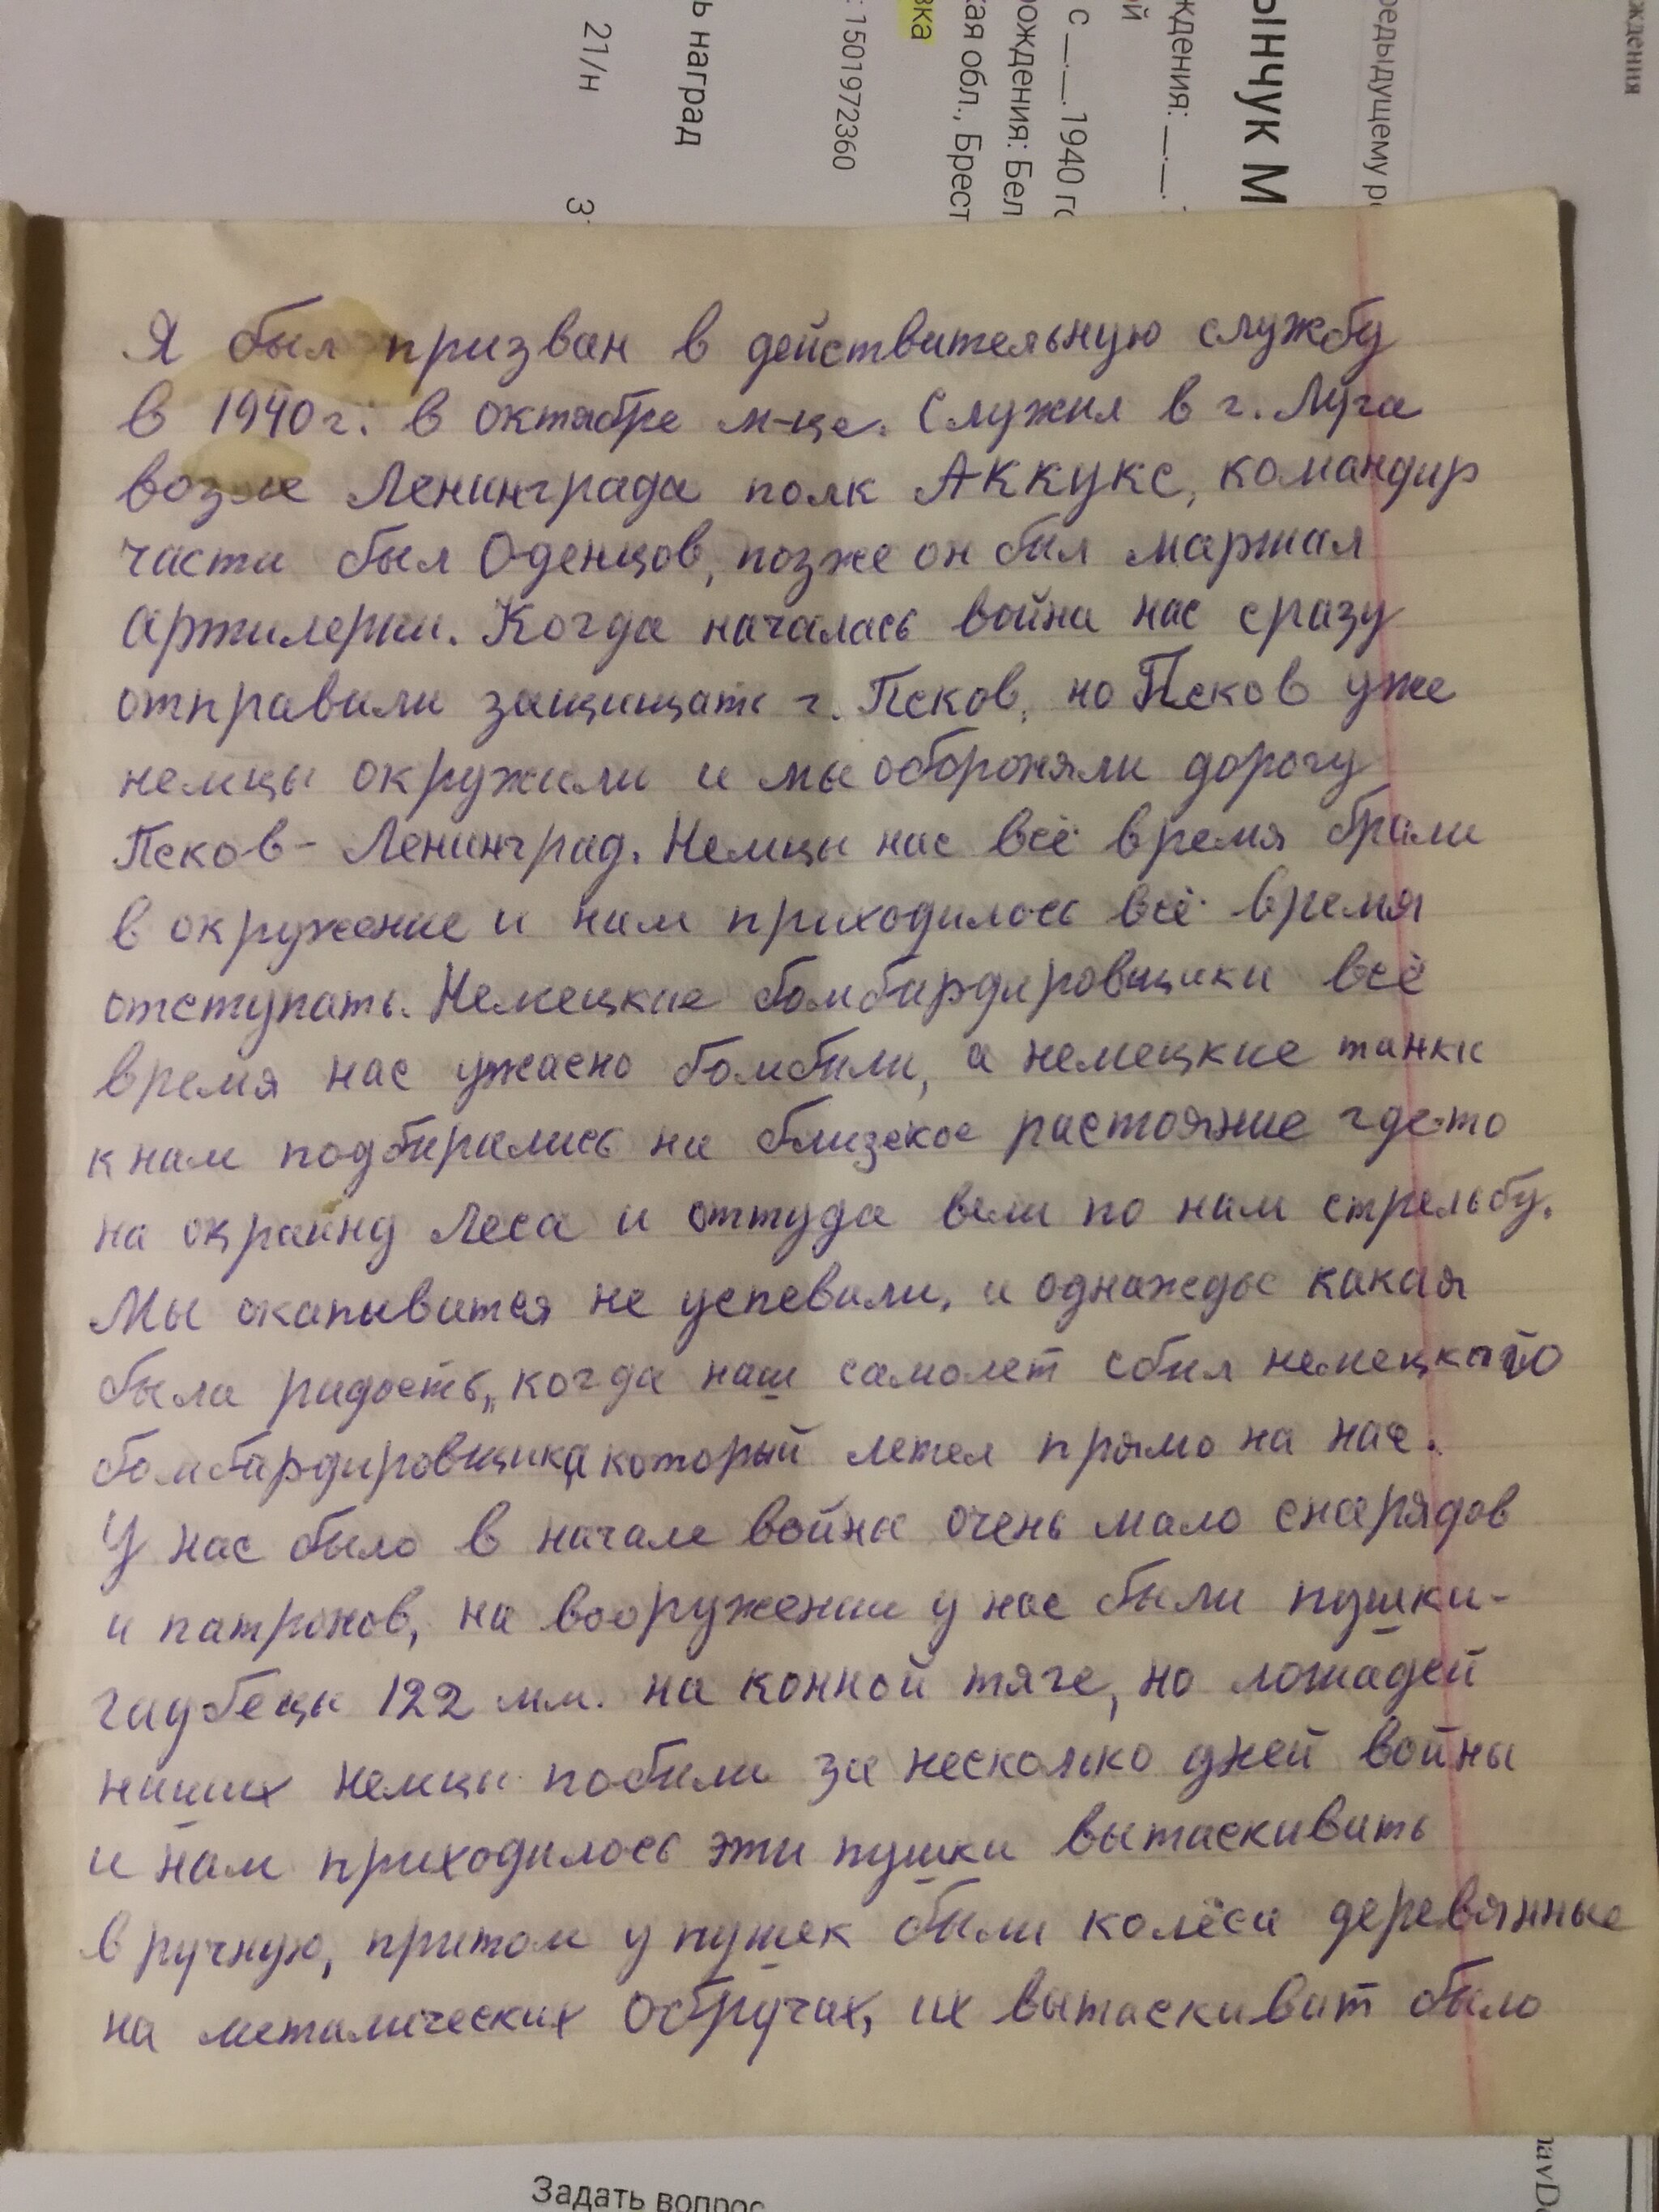 ждения
редыдущему р
ынчук М
ждения: __.__.
ой
с __.__.1940 г
рождения: Бел
кая обл., Брест
вка
: 1501972360
ь наград
21/н
Я был призван в действительную службу
в 1940 г. в октябре м-це. Служил в г. Луга
возле Ленинграда полк АККУКС, командир
части был Оденцов, позже он был маршал
артилерии. Когда началась война нас сразу
отправили защищать г. Псков, но Псков уже
немцы окружили и мы обороняли дорогу
Псков - Ленинград. Немцы нас всё время брали
в окружение и нам приходилось всё время
отступать. Немецкие бомбардировщики всё
время нас ужасно бомбили, а немецкие танки
к нам подбирались на близское растояние где-то
на окраину леса и оттуда вели по нам стрельбу.
Мы окапыватся не успевали, и однажды какая
была радость, когда наш самолет сбил немецкого
бомбардировщика который летел прямо на нас.
У нас было в начале войны очень мало снарядов
и патронов, на вооружении у нас были пушки-
гаубецы 122 мм. на конной тяге, но лошадей
наших немцы побили за несколько дней войны
и нам приходилось эти пушки вытаскивать
в ручную, притом у пушек были колёса деревянные
на металических обручах, их вытаскиват было
Задать вопрос